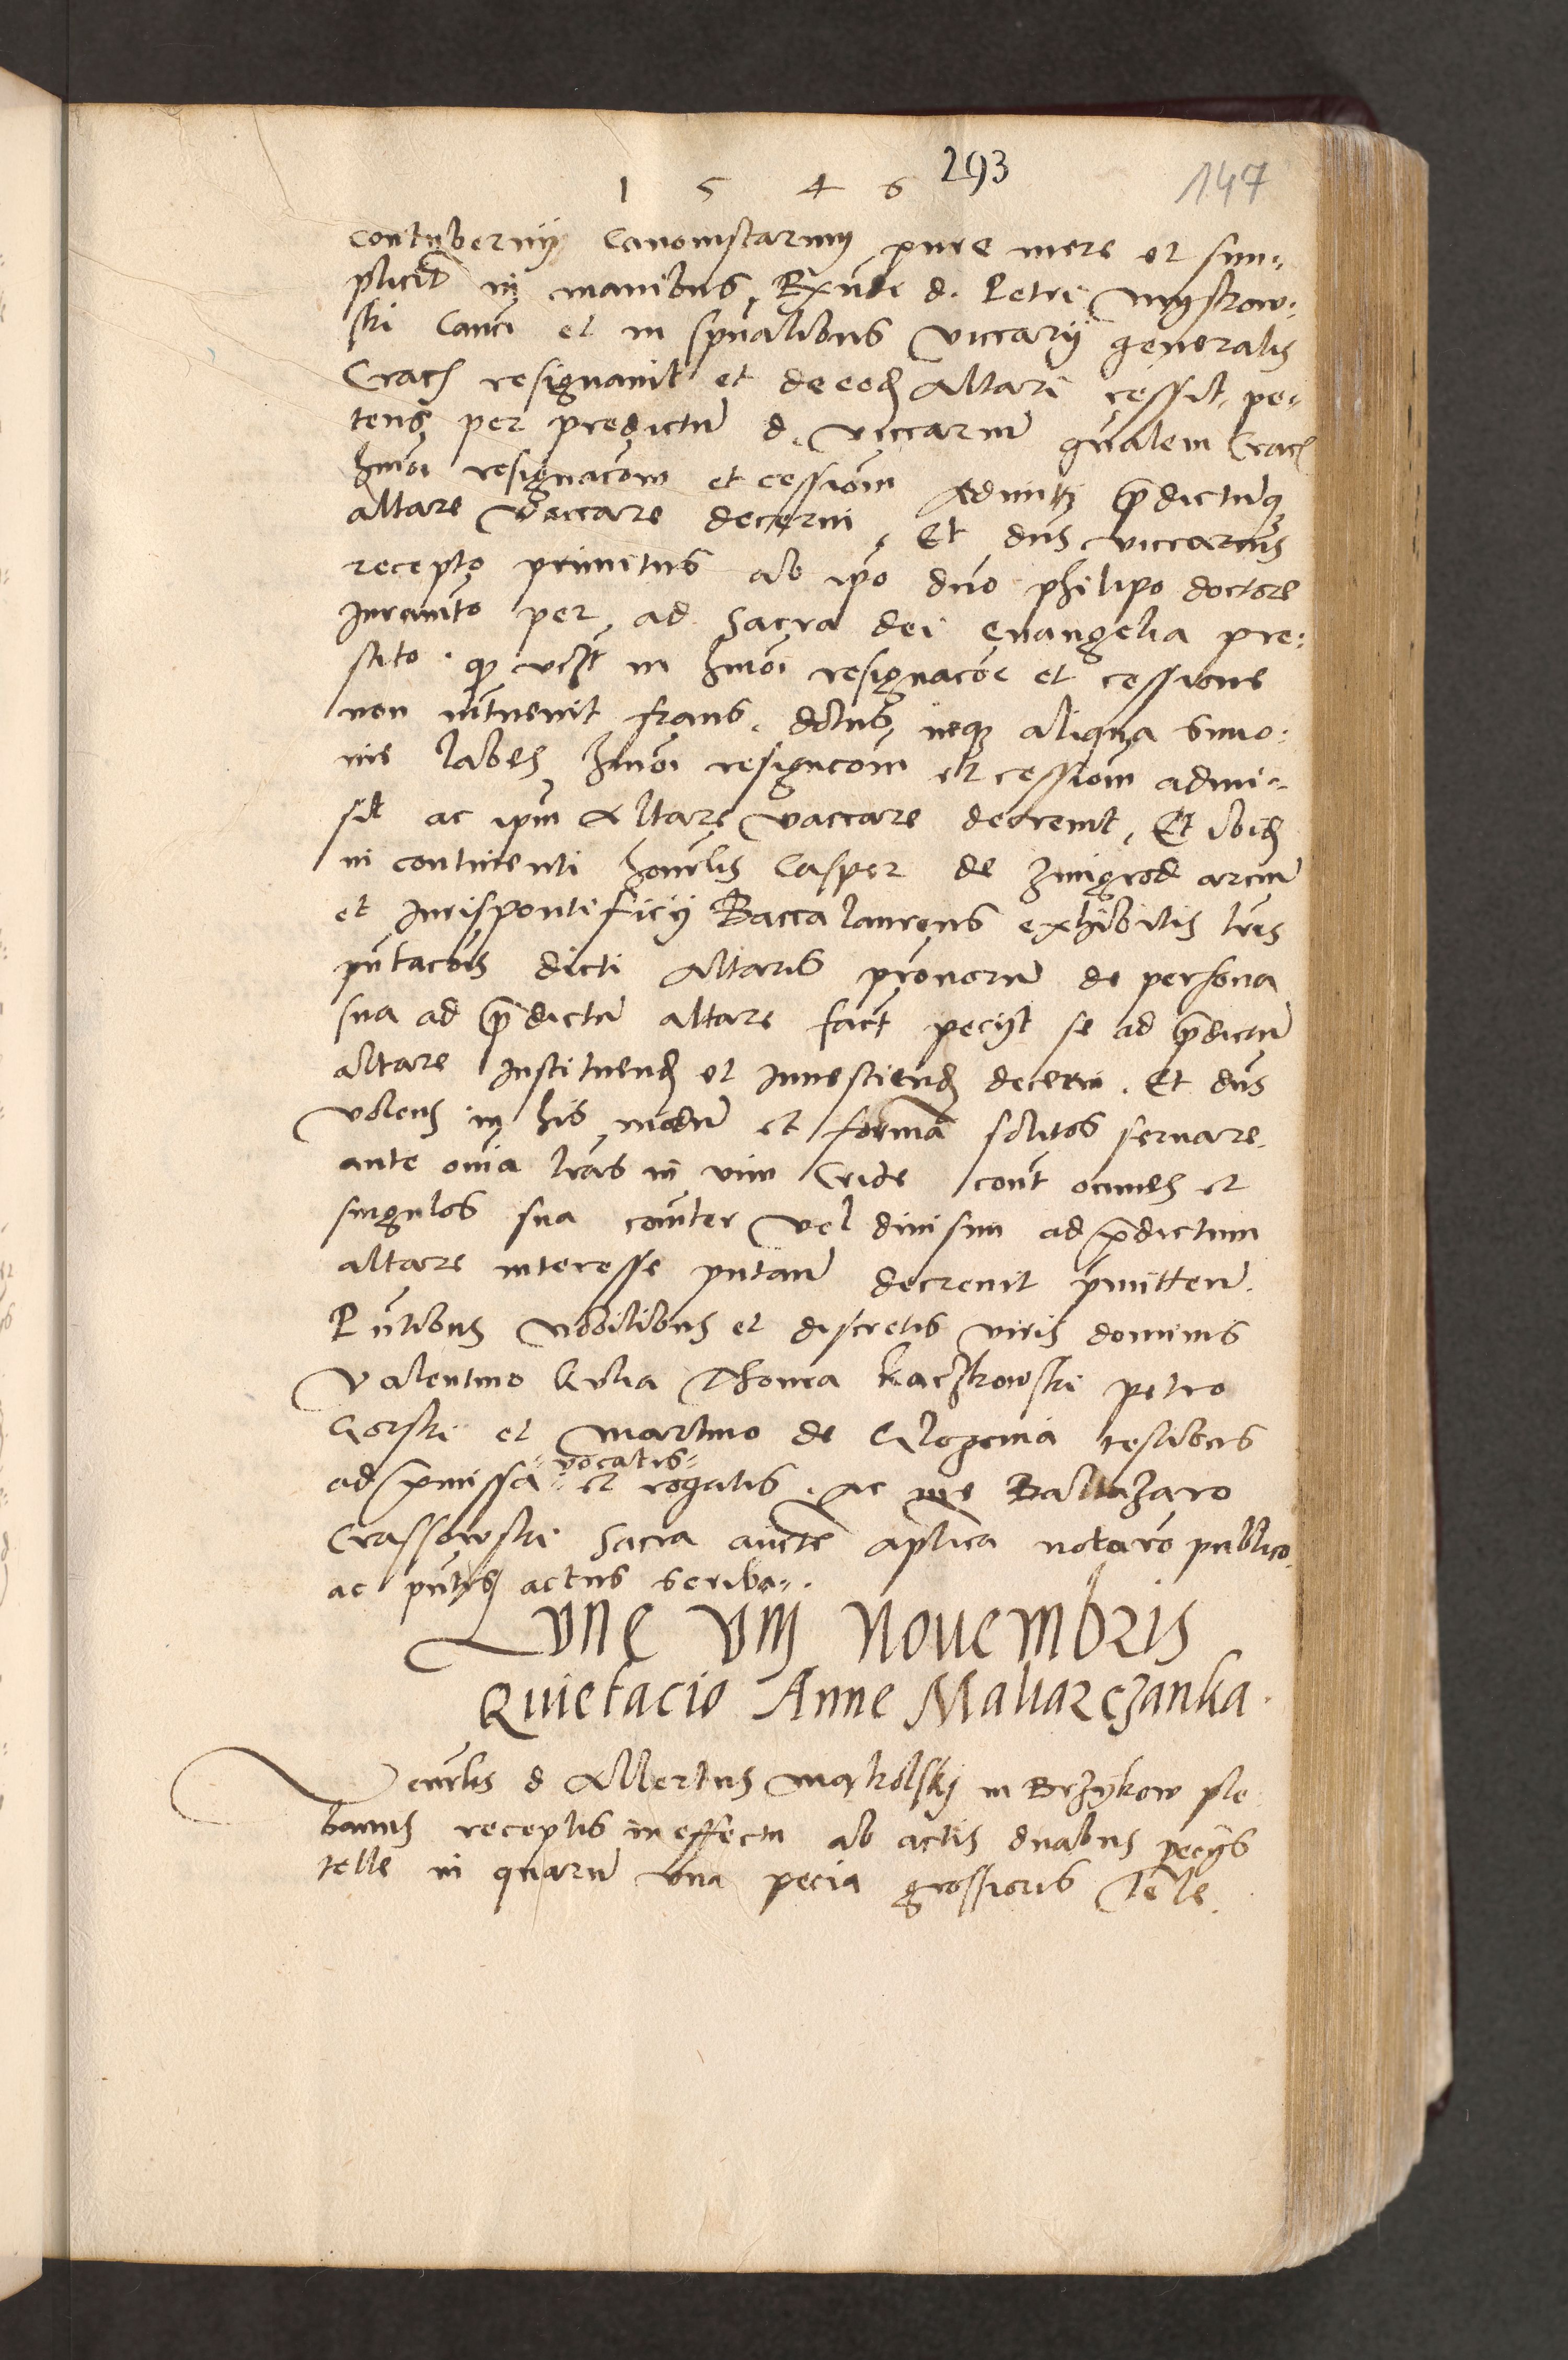 1 5 4 6 293 147
contubernij Canonistarum pure mere et sim⸗
plicit̃ in manibus Rxñdi d. Petri myskow⸗
ski Canci et in spũalibus viccarij generalis
Crac resignavit et de eod altari cessit, pe⸗
tens per predictũ d. viccariũ gñalem Crac
hmõi resignacõm et cessiõm Admitti p̃dictũq
altare vaccare decerni, Et dñs viccarius
recepto primitus ab ip̃o dño philipo doctore
Juramẽto per ad sacra dei evangelia pre⸗
stito. q vcʒt in hmõi resignacõe et cessione
non intervenit fraus, dolus, neq aliqua simo⸗
nie labes hmõi resigncõm et cessiõm admi⸗
sit ac ip̃m altare vaccare decrevit, Et ibid
in continenti honrlis Casper de zmigrod arciũ
et Jurispontificij Baccalaureus exhibitis lr̃is
pñtacõis dicti altaris pr̃onorũ de persona
sua ad p̃dictũ altare fact̃ pecijt se ad p̃dictũ
altare Instituend et Investiend decerni. Et dñs
volens in his modũ et formã solitos servare
ante oĩa lr̃as in vim Cride cont̃ omnes et
singulos sua com̃iter vel divisim ad p̃dictum
altare interesse putan̄ decrevit p̃mitten̄.
Pñtibus Nobilibus et discretis viris dominis
Valentino Kulia Thoma kaczkowski petro
Gorski et martino de Glogovia testibus
ad p̃missa vocatis et rogatis. ac me Baltazaro
Crassowski Sacra aucte ap̃lica notario publico
ac pñtis actus scriba.
Lune viij Novembris
Quietacio Anne Maliarczanka.
Venrlis d Albertus mąkolskj in Brzÿkow ple
banus receptis in effectu ab actis duabus pecijs
telle in quarũ una pecia grossioris Tele